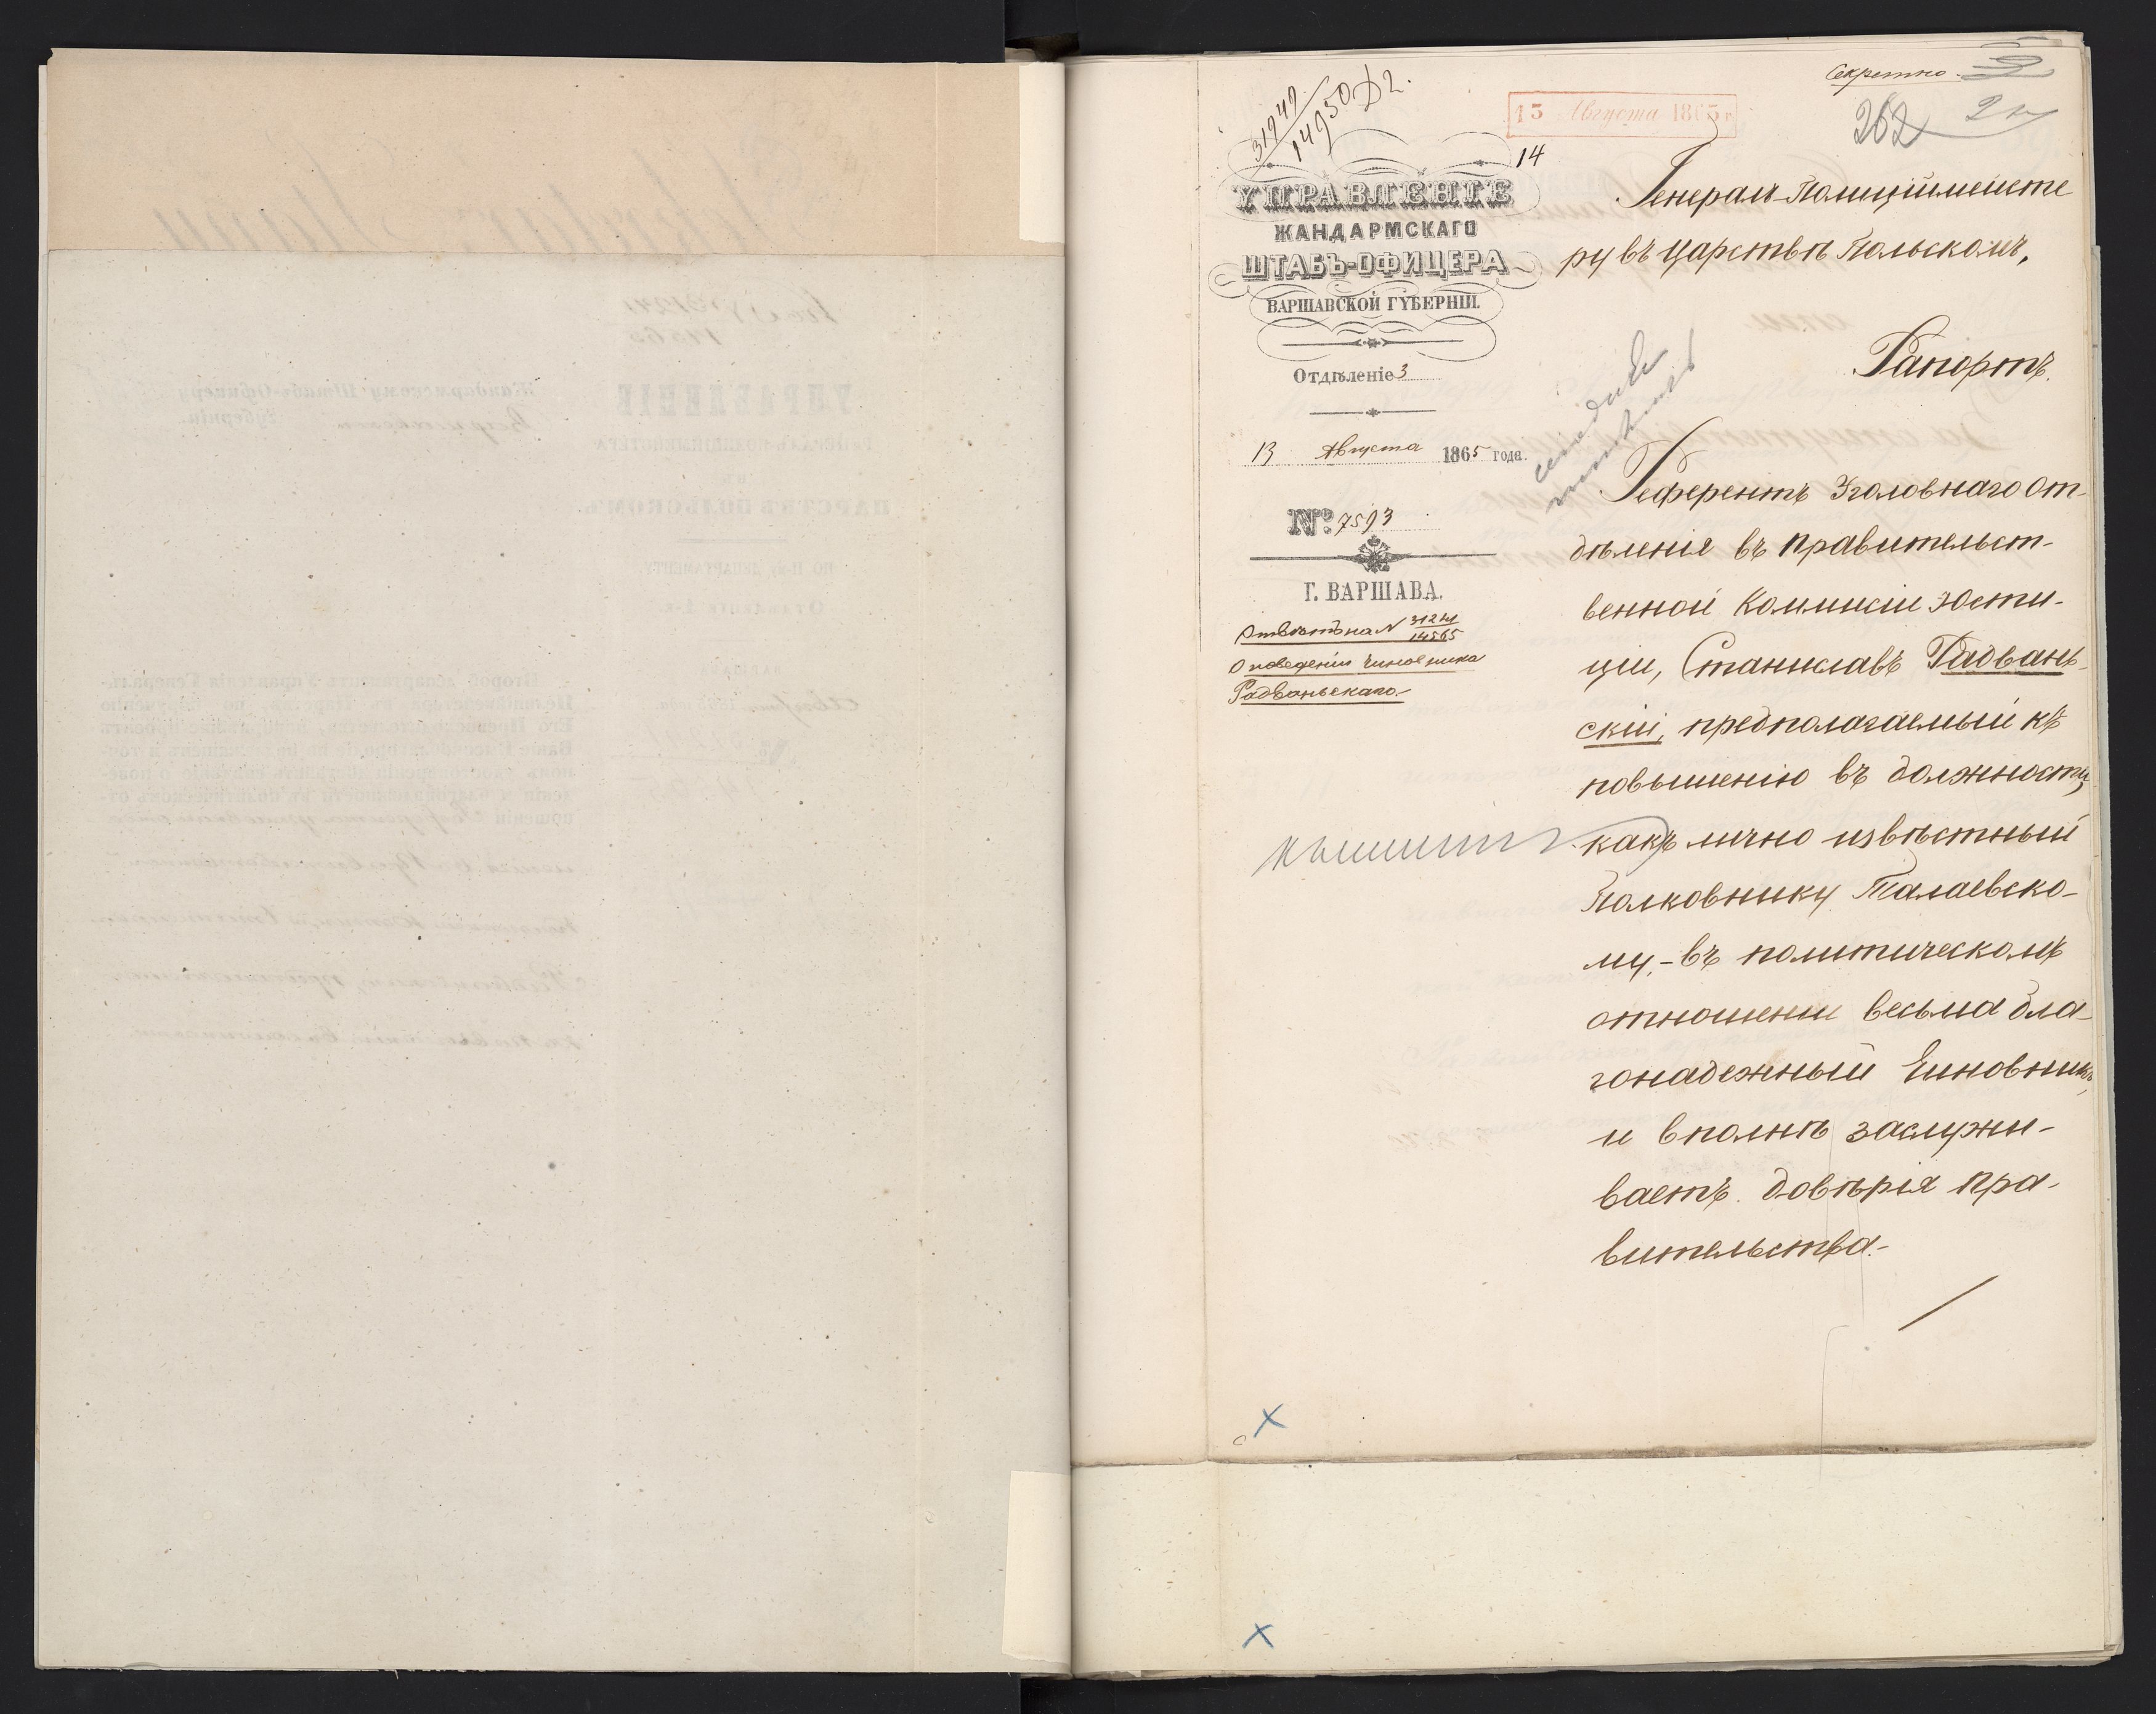 Секретно.
262
31949
14950 Д2.
15 Августа 1865 г
14
УПРАВЛЕНІЕ
ЖАНДАРМСКАГО
ШТАБЪ-ОФИЦЕРА
ВАРШАВСКОЙ ГУБЕРНІИ.
Отдѣленіе 3
13 Августа 1865 года.
№ 7593
Г. ВАРШАВА.
Отвѣтъ на № 31241
14565
О поведеніи чиновника
Радваньскаго.-
Генералъ-Полиціймейсте
ру въ Царствѣ Польскомъ,
Рапортъ.
Референтъ Уголовнаго От-
дѣленія въ Правительст-
венной Коммисіи Юсти-
ціи, Станиславъ Радвань-
скій, предполагаемый къ
повышенію въ должность,
какъ лично извѣстный
Полковнику Талаевско-
му,- въ политическомъ
отношеніи весьма бла-
гонадежный Чиновникъ,
и вполнѣ заслужи-
ваетъ довѣрія пра-
вительства.-